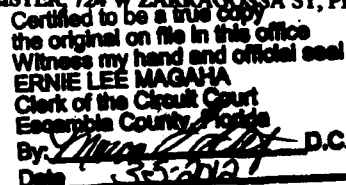 724 W ZARRAGOSSA ST, P
Certified to be a true copy
the original on file in this office
Witness my hand and official seal
ERNIE LEE MAGAHA
Clerk of the Circuit Court
Escambia County, Florida
By: D.C.
Date